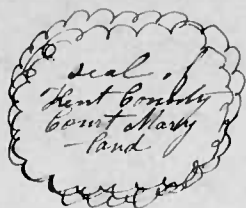 seal,
Kent County
Court Mary
-land